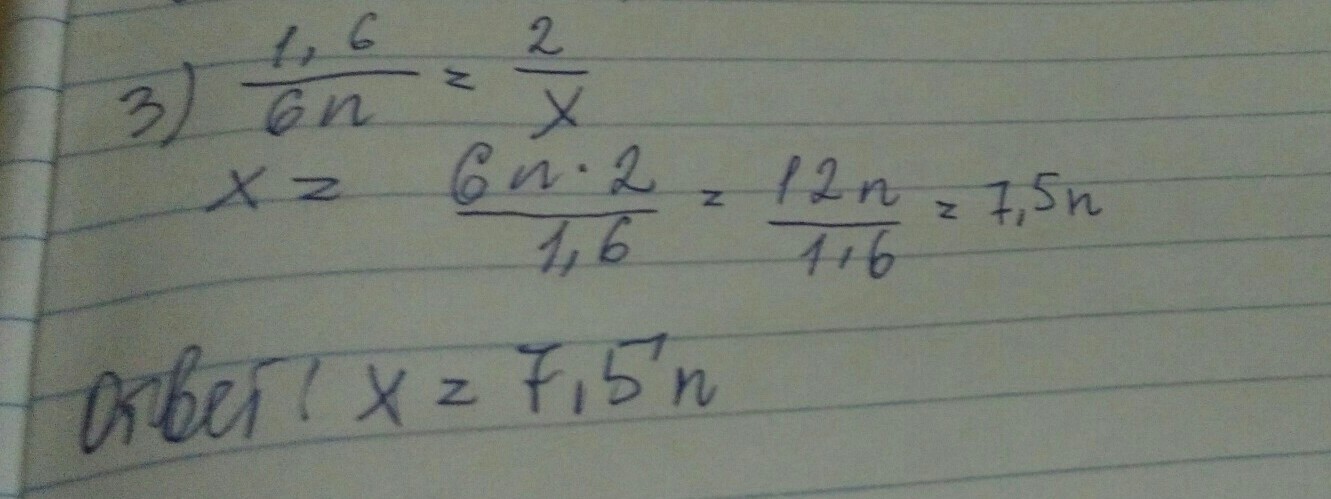 3) 1,6/6n = 2/x
x = 6n·2/1,6 = 12n/1,6 = 7,5n
Ответ: x = 7,5n